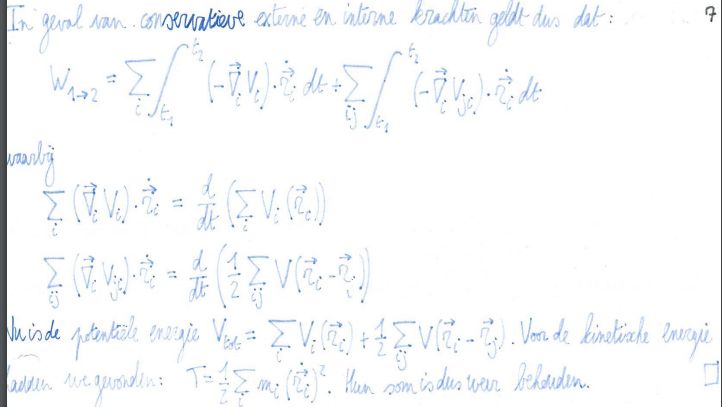 In geval van conservatieve externe en interne krachten geldt dus dat: 7
W_{1→2} = \sum_i \int_{t_1}^{t_2} (-\vec{∇}_i V_i)·\dot{\vec{r}}_i dt + \sum_{ij} \int_{t_1}^{t_2} (-\vec{∇}_i V_{ji})·\dot{\vec{r}}_i dt
waarbij
\sum_i (\vec{∇}_i V_i)·\dot{\vec{r}}_i = \frac{d}{dt} (\sum_i V_i(\vec{r}_i))
\sum_{ij} (\vec{∇}_i V_{ji})·\dot{\vec{r}}_i = \frac{d}{dt} (\frac{1}{2} \sum_{ij} V(\vec{r}_i - \vec{r}_i))
Nu is de potentiële energie V_{tot} = \sum_i V_i(\vec{r}_i) + \frac{1}{2} \sum_{ij} V(\vec{r}_i - \vec{r}_j). Voor de kinetische energie
hadden we gevonden: T = \frac{1}{2} \sum_i m_i (\dot{\vec{r}}_i)^2. Hun som is dus weer behouden. □